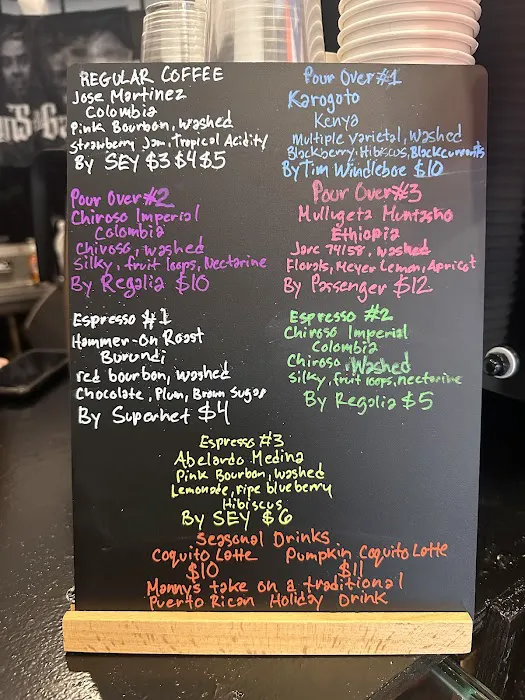 REGULAR COFFEE
Jose Martinez
Colombia
Pink Bourbon, washed
Strawberry Jam, Tropical Acidity
By SEY $3 $4 $5
Pour Over #1
Karogoto
Kenya
Multiple varietal, washed
Blackberry, Hibiscus, Blackcurrants
By Tim Windleboe $10
Pour Over #2
Chiroso Imperial
Colombia
Chiroso, washed
Silky, fruit loops, Nectarine
By Regalia $10
Pour Over #3
Mullugeta Muntasha
Ethiopia
Jarc 74158, washed
Florals, Meyer Lemon, Apricot
By Passenger $12
Espresso #1
Hammer-On Roast
Burundi
red bourbon, washed
Chocolate, Plum, Brown Sugar
By Superhet $4
Espresso #2
Chiroso Imperial
Colombia
Chiroso, Washed
Silky, fruit loops, nectarine
By Regalia $5
Espresso #3
Abelardo Medina
Pink Bourbon, washed
Lemonade, ripe blueberry
Hibiscus
By SEY $6
Seasonal Drinks
Coquito Latte Pumpkin Coquito Latte
$10 $11
Manny's take on a traditional
Puerto Rican Holiday Drink